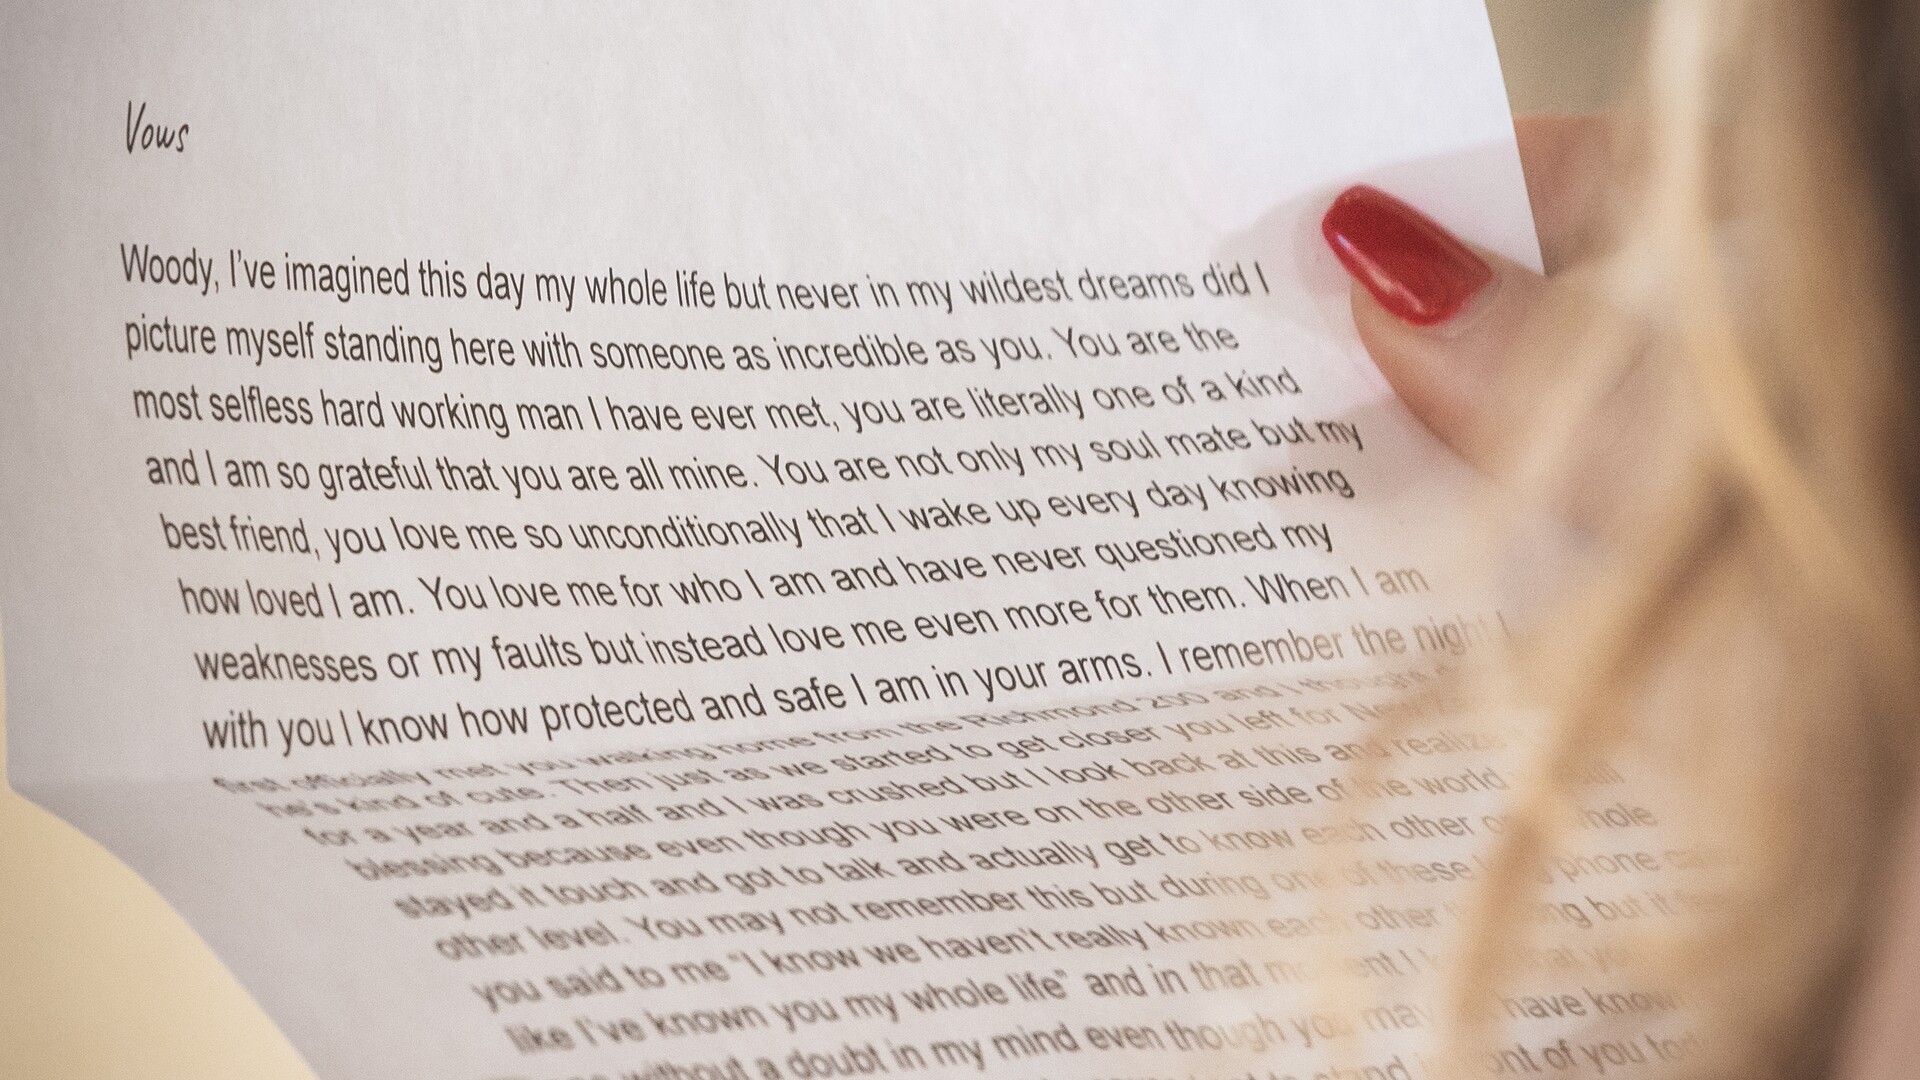 Vows
Woody, I've imagined this day my whole life but never in my wildest dreams did I
picture myself standing here with someone as incredible as you. You are the
most selfless hard working man I have ever met, you are literally one of a kind
and I am so grateful that you are all mine. You are not only my soul mate but my
best friend, you love me so unconditionally that I wake up every day knowing
how loved I am. You love me for who I am and have never questioned my
weaknesses or my faults but instead love me even more for them. When I am
with you I know how protected and safe I am in your arms. I remember the night I
first officially met you walking home from the Richmond 200 and I thought
he's kind of cute. Then just as we started to get closer you left for New
for a year and a half and I was crushed but I look back at this and realize
blessing because even though you were on the other side of the world
stayed it touch and got to talk and actually get to know each other whole
other level. You may not remember this but during one of these phone
you said to me "I know we haven't really known each other but it
like I've known you my whole life" and in that moment I
without a doubt in my mind even though you may have known
stand of you